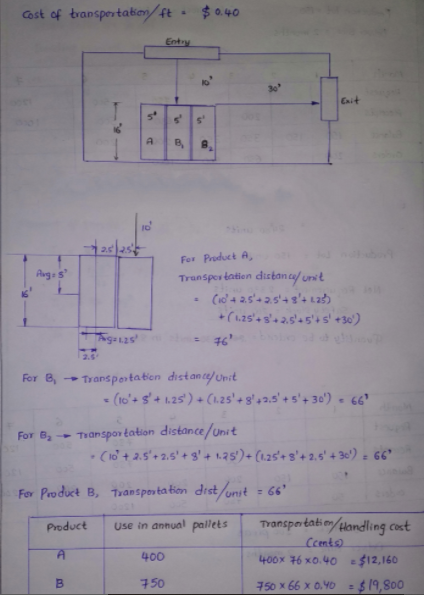 Cost of transportation/ft = $ 0.40
Entry
10'
30'
Exit
16'
5' 5' 5'
A B₁ B₂
10'
2.5' 2.5'
Avg = 8'
16'
Avg = 1.25'
2.5'
For Product A,
Transportation distance/unit
= (10' + 2.5' + 2.5' + 8' + 1.25')
+ (1.25' + 8' + 2.5' + 5' + 5' + 30')
= 76'
For B₁ → Transportation distance/unit
= (10' + 8' + 1.25') + (1.25' + 8' + 2.5' + 5' + 30') = 66'
For B₂ → Transportation distance/unit
= (10' + 2.5' + 2.5' + 8' + 1.25') + (1.25' + 8' + 2.5' + 30') = 66'
For Product B, Transportation dist/unit = 66'
Product Use in annual pallets Transportation/Handling cost
(cents)
A 400 400 x 76 x 0.40 = $12,160
B 750 750 x 66 x 0.40 = $19,800